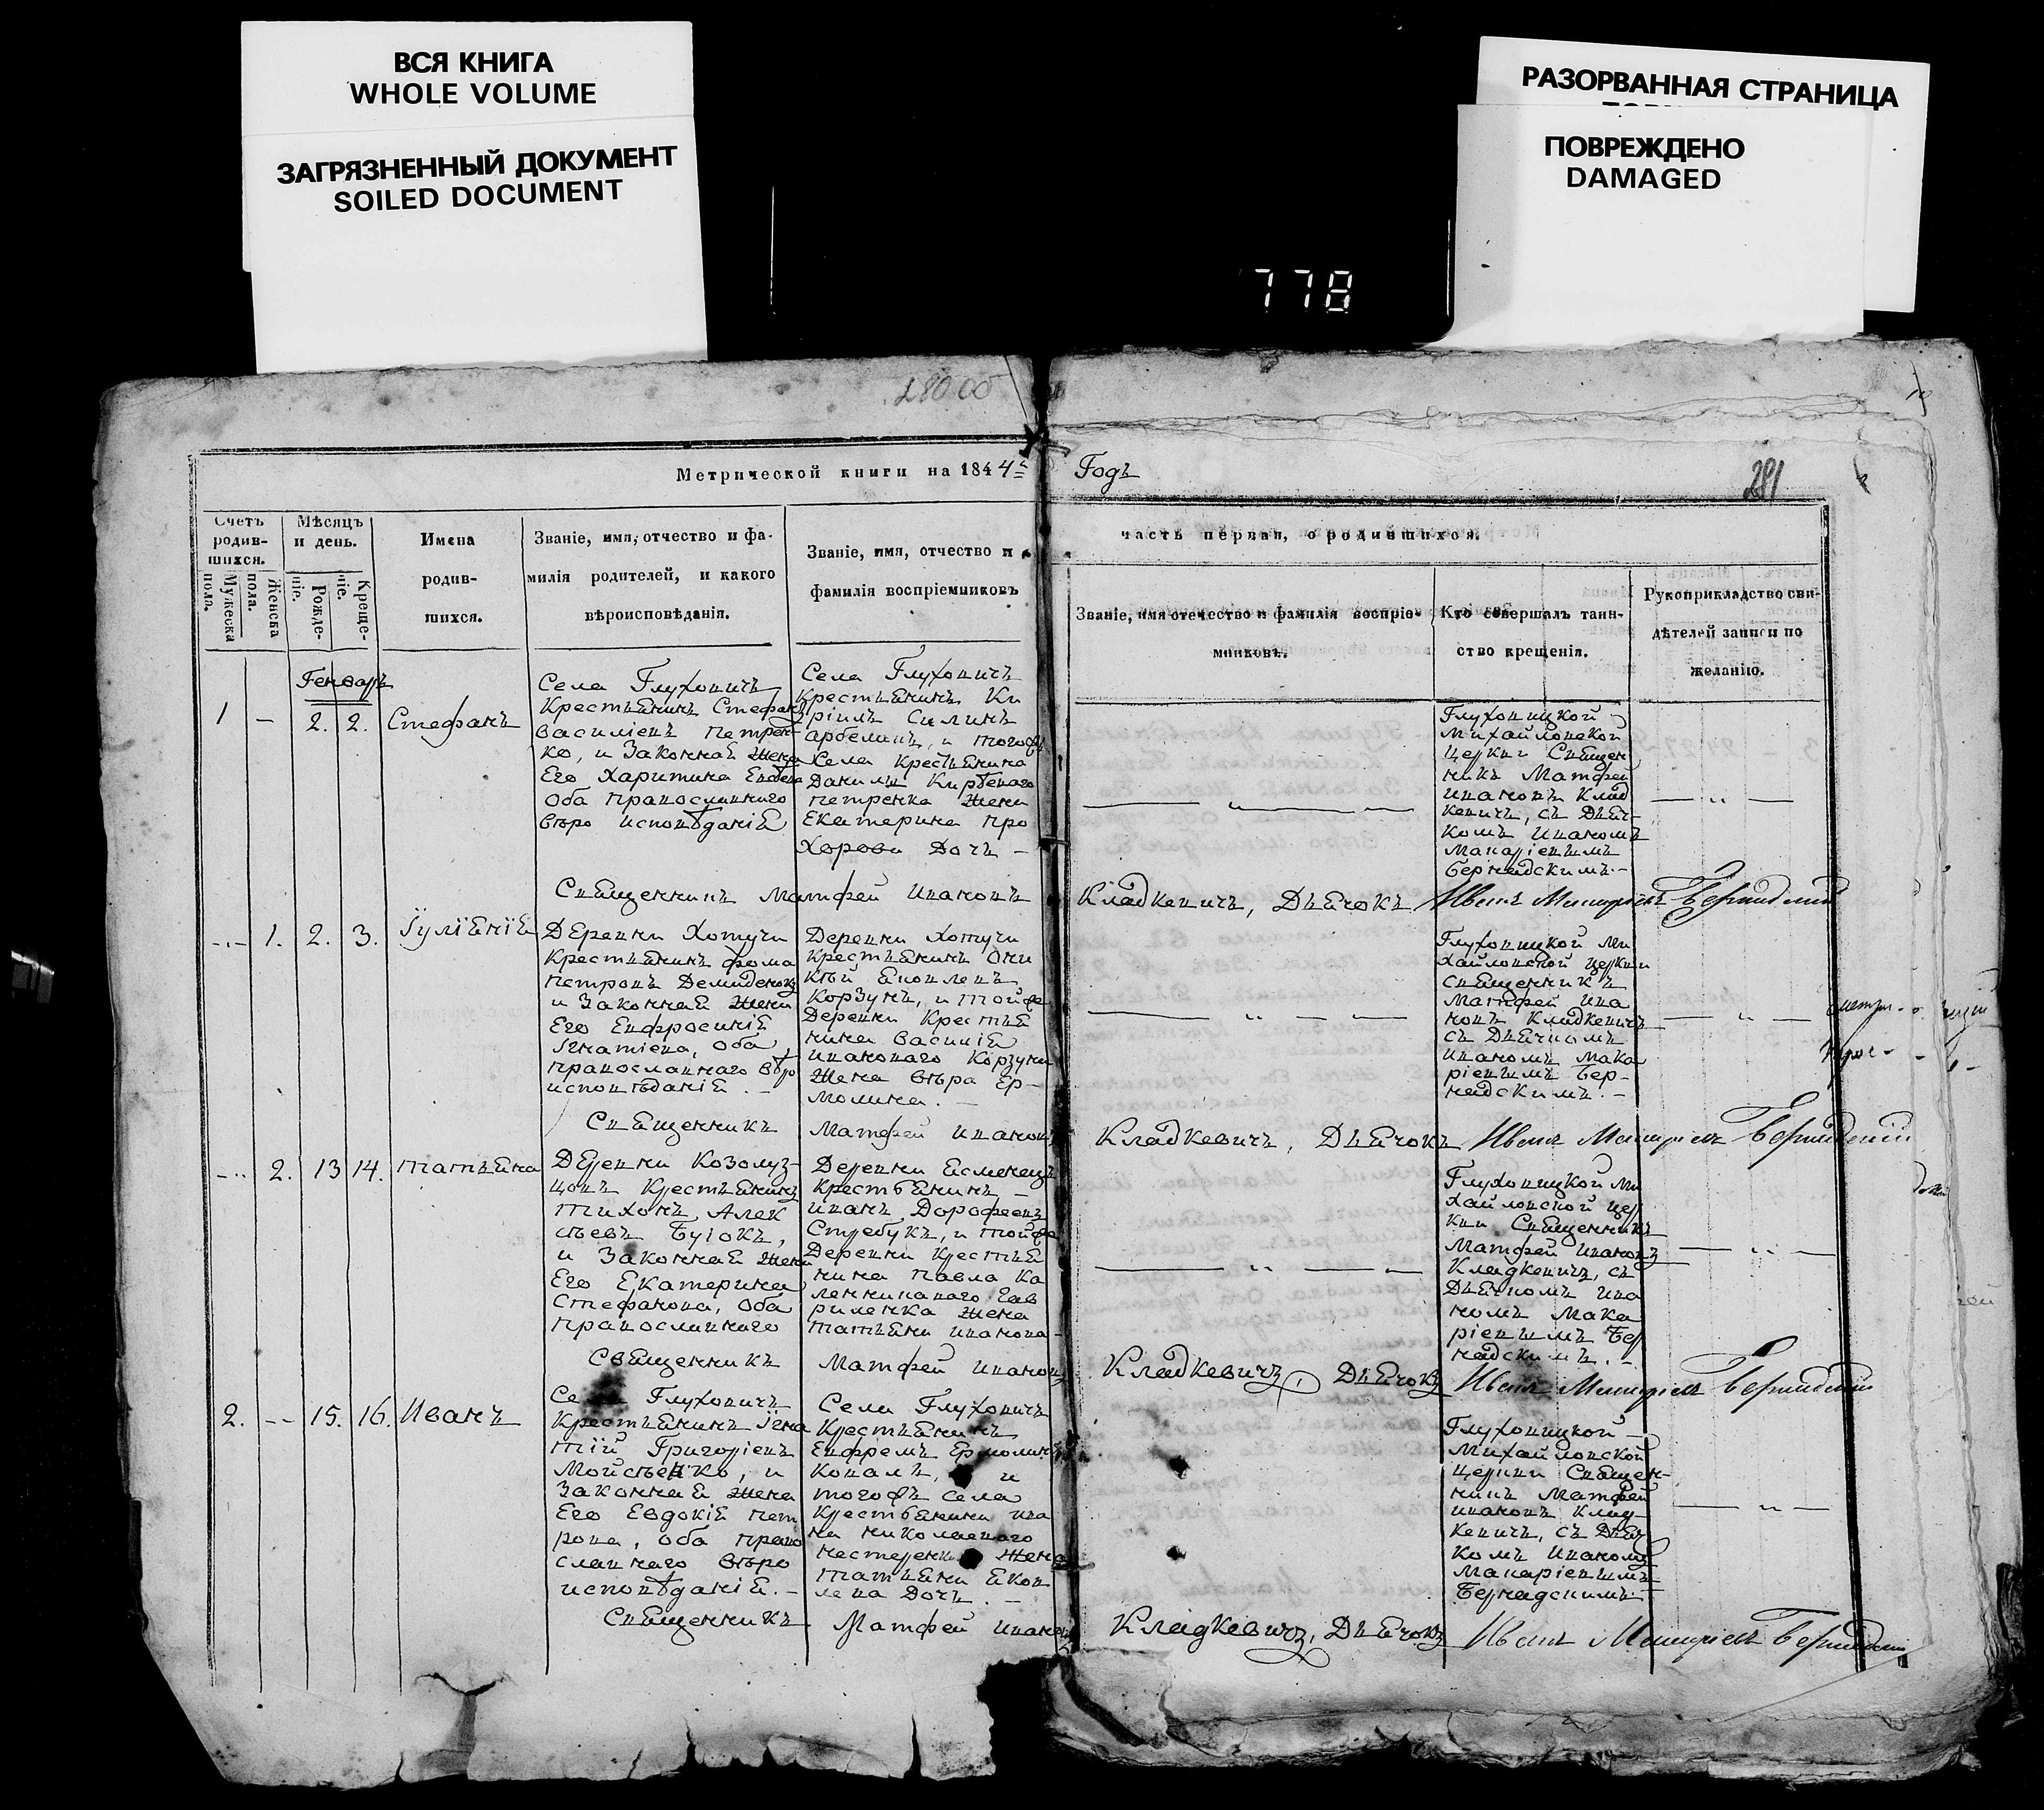 ВСЯ КНИГА
WHOLE VOLUME
ЗАГРЯЗНЕННЫЙ ДОКУМЕНТ
SOILED DOCUMENT
РАЗОРВАННАЯ СТРАНИЦА
ПОВРЕЖДЕНО
DAMAGED
778
280 об
Метрической книги на 1844
Годъ
281
Счетъ родив-шихся.
Мужеска пола.
Женска пола.
Мѣсяцъ и день.
Рожде-ніе.
Креще-ніе.
Имена
родив-
шихся.
Званіе, имя, отчество и фа-
милія родителей, и какого
вѣроисповѣданія.
Званіе, имя, отчество и
фамилія воспріемниковъ
часть первая, о родившихся.
Званіе, имя отечество и фамилія воспріе-
мниковъ.
Кто совершалъ таин-
ство крещенія.
Рукоприкладство сви-
дѣтелей записи по
желанію.
Генварь
1 — 2. 2. Стефанъ
Села Глуховичъ
Крестьянинъ Стефанъ
Василіевъ Петрен-
ко, и Законная Жена
Его Харитина
Оба Православнаго
Вѣро исповѣданія
Села Глуховичъ
Крестьянинъ Ки
рилъ
и тогожъ
Села Крестьянина
Данилы
Петренка Жена
Екатерина Про
хорова Дочь —
Глуховицкой
Михайловской
Церкви Священ
никъ Матфей
Ивановъ Клад
кевичъ, съ Дьяч-
комъ Иваномъ
Макаріевымъ
Бернадскимъ. —
Священникъ Матфей Ивановъ
Кладкевичъ, Дьячокъ Иванъ Макаріевъ Бернадскій
1. 2. 3. Іуліянія
Деревни Хотучи
Крестьянинъ Фома
Петровъ Демиденокъ
и Законная Жена
Его Евфросинія
Игнатіева, Оба
Православнаго Вѣро
исповѣданія. —
Деревни Хотучи
Крестьянинъ Они
кій Яковлевъ
Корзунъ, и Тойже
Деревни Крестья
нина Василія
Ивановаго Корзуна
Жена Вѣра Ер-
молина. —
Глуховицкой Ми
хайловской Церкви
Священникъ
Матфей Ива
новъ Кладкевичъ
съ Дьячкомъ
Иваномъ Мака
ріевымъ Бер-
надскимъ. —
Священникъ Матфей Ивановъ
Кладкевичъ, Дьячокъ Иванъ Макаріевъ Бернадскій
2. 13 14. Татьяна
Деревни Козолуз-
цовъ Крестьянинъ
Тихонъ Алек
сѣевъ Буіокъ,
и Законная Жена
Его Екатерина
Стефанова, Оба
Православнаго
Деревни Ясменецъ
Крестьянинъ —
Иванъ Дорофеевъ
Стребукъ, и Тойже
Деревни Крестья
нина Павла Ка
ленниковаго Гав
риленка Жена
Татьяна Иванова —
Глуховицкой Ми
хайловской Цер
кви Священникъ
Матфей Ивановъ
Кладкевичъ, съ
Дьячкомъ Ива
номъ Мака
ріевымъ Бер
надскимъ. —
Священникъ Матфей Ивановъ
Кладкевичъ, Дьячокъ Иванъ Макаріевъ Бернадскій
2. -- 15. 16. Иванъ
Села Глуховичъ
Крестьянинъ Игна
тій Григоріевъ
Мойсѣенко, и
Законная Жена
Его Евдокія Пет
рова, Оба Право
славнаго Вѣро
исповѣданія. —
Села Глуховичъ
Крестьянинъ
Ефремъ Ермолинъ
Коваль, и
тогожъ Села
Крестьянина Ива
на Николаеваго
Нестеренка Жена
Татьяна Яков
лева Дочь. —
Глуховицкой —
Михайловской
Церкви Священ-
никъ Матфей
Ивановъ Клад-
кевичъ, съ Дьяч
комъ Иваномъ
Макаріевымъ
Бернадскимъ. —
Священникъ Матфей Ивановъ
Кладкевичъ, Дьячокъ Иванъ Макаріевъ Бернадскій